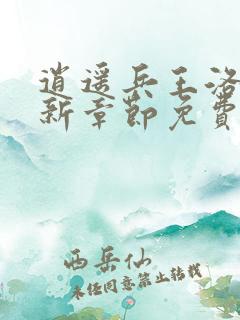 逍遥兵王洛
新章节免费
西岳仙
未经同意禁止转载